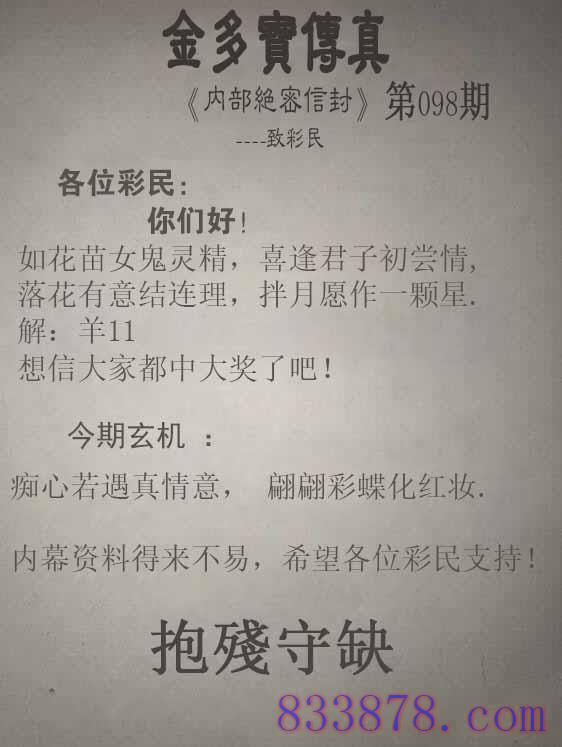 金多寳傳真
《内部絶密信封》第098期
----致彩民
各位彩民:
你们好!
如花苗女鬼灵精，喜逢君子初尝情,
落花有意结连理，拌月愿作一颗星.
解：羊11
想信大家都中大奖了吧!
今期玄机 ：
痴心若遇真情意， 翩翩彩蝶化红妆.
内幕资料得来不易，希望各位彩民支持!
抱殘守缺
833878.com